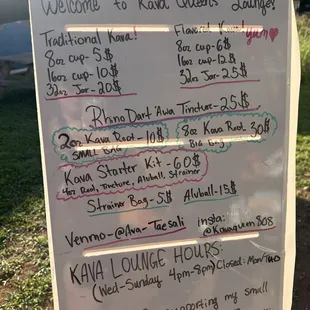 Welcome to Kava Queens Lounge!
Traditional Kava!
8oz cup - 5$
16oz cup - 10$
32oz Jar - 20$
Flavored Kava!
yum
8oz cup - 6$
16oz cup - 12$
32oz Jar - 25$
Rhno Dart 'Awa Tincture - 25$
2oz Kava Root - 10$
SMALL BAG
8oz Kava Root 30$
BIG Bag
Kava Starter Kit - 60$
4oz Root, Tincture, Aluball, Strainer
Strainer Bag - 5$ Aluball - 15$
Venmo - @Ava-Taesali
insta:
@Kavaqueen808
KAVA LOUNGE HOURS:
(Wed-Sunday 4pm-8pm) Closed: Mon/Tues
supporting my small